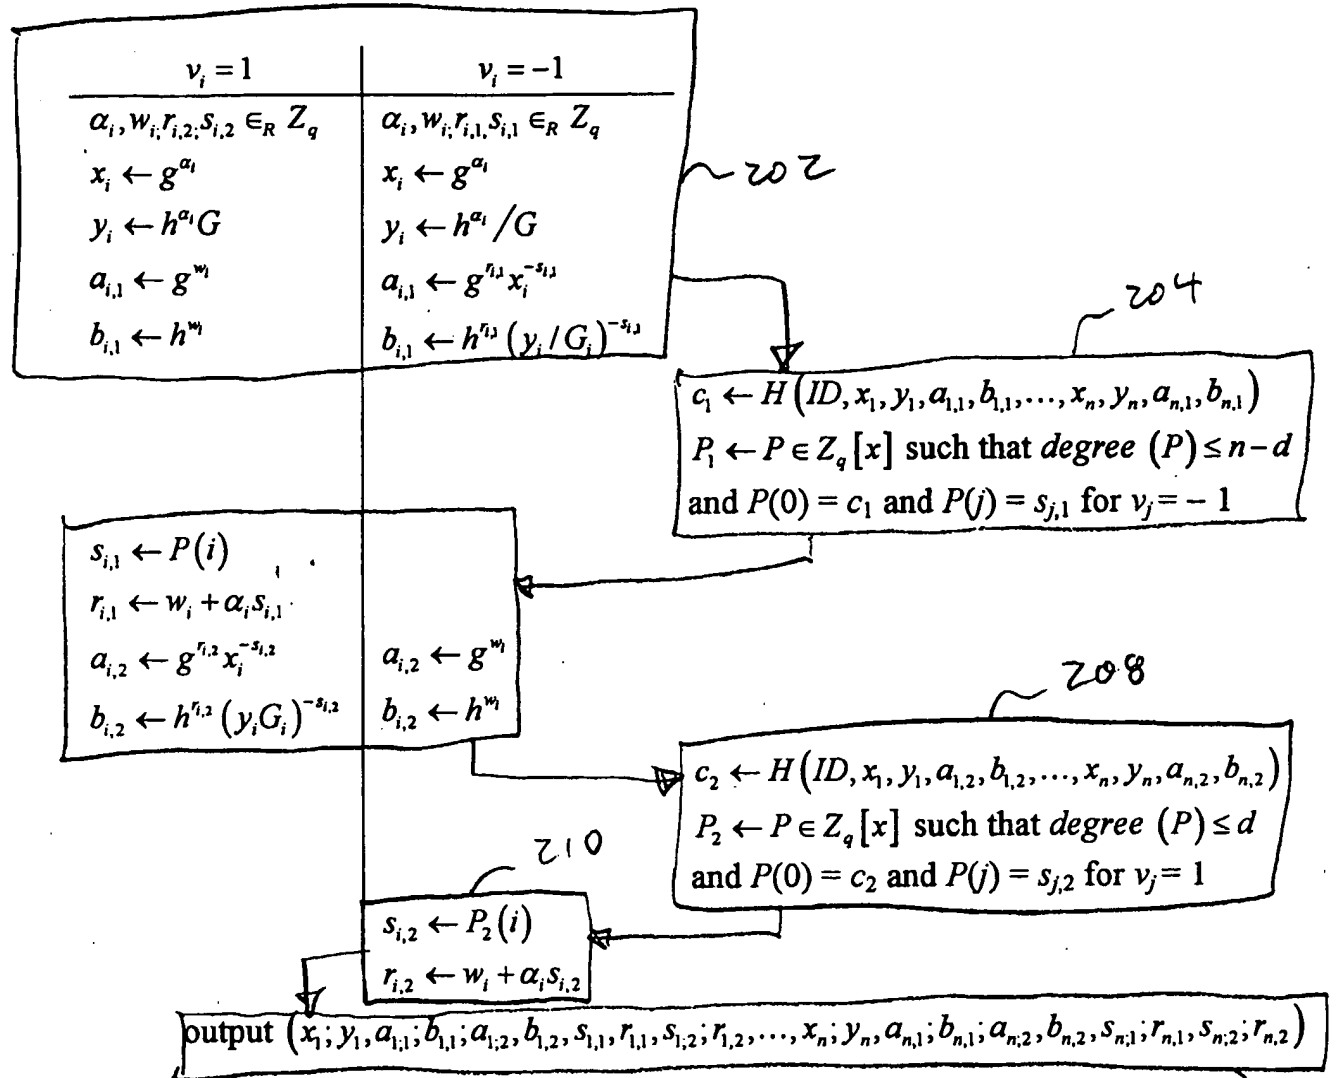 v_i = 1    v_i = −1
α_i, w_i; r_{i,2}; s_{i,2} ∈_R Z_q    α_i, w_i; r_{i,1}, s_{i,1} ∈_R Z_q
x_i ← g^{α_i}    x_i ← g^{α_i}
202
y_i ← h^{α_i} G    y_i ← h^{α_i} / G
a_{i,1} ← g^{w_i}    a_{i,1} ← g^{r_{i,1}} x_i^{−s_{i,1}}
b_{i,1} ← h^{w_i}    b_{i,1} ← h^{r_{i,1}} (y_i / G_i)^{−s_{i,1}}
204
c_1 ← H(ID, x_1, y_1, a_{1,1}, b_{1,1}, ..., x_n, y_n, a_{n,1}, b_{n,1})
P_1 ← P ∈ Z_q[x] such that degree (P) ≤ n − d
and P(0) = c_1 and P(j) = s_{j,1} for v_j = − 1
s_{i,1} ← P(i)
r_{i,1} ← w_i + α_i s_{i,1}
a_{i,2} ← g^{r_{i,2}} x_i^{−s_{i,2}}    a_{i,2} ← g^{w_i}
b_{i,2} ← h^{r_{i,2}} (y_i G_i)^{−s_{i,2}}    b_{i,2} ← h^{w_i}
208
c_2 ← H(ID, x_1, y_1, a_{1,2}, b_{1,2}, ..., x_n, y_n, a_{n,2}, b_{n,2})
P_2 ← P ∈ Z_q[x] such that degree (P) ≤ d
and P(0) = c_2 and P(j) = s_{j,2} for v_j = 1
210
s_{i,2} ← P_2(i)
r_{i,2} ← w_i + α_i s_{i,2}
output (x_1; y_1, a_{1;1}; b_{1,1}; a_{1;2}, b_{1,2}, s_{1,1}, r_{1,1}, s_{1;2}; r_{1,2}, ..., x_n; y_n, a_{n,1}; b_{n,1}; a_{n;2}, b_{n,2}, s_{n;1}; r_{n,1}, s_{n;2}; r_{n,2})